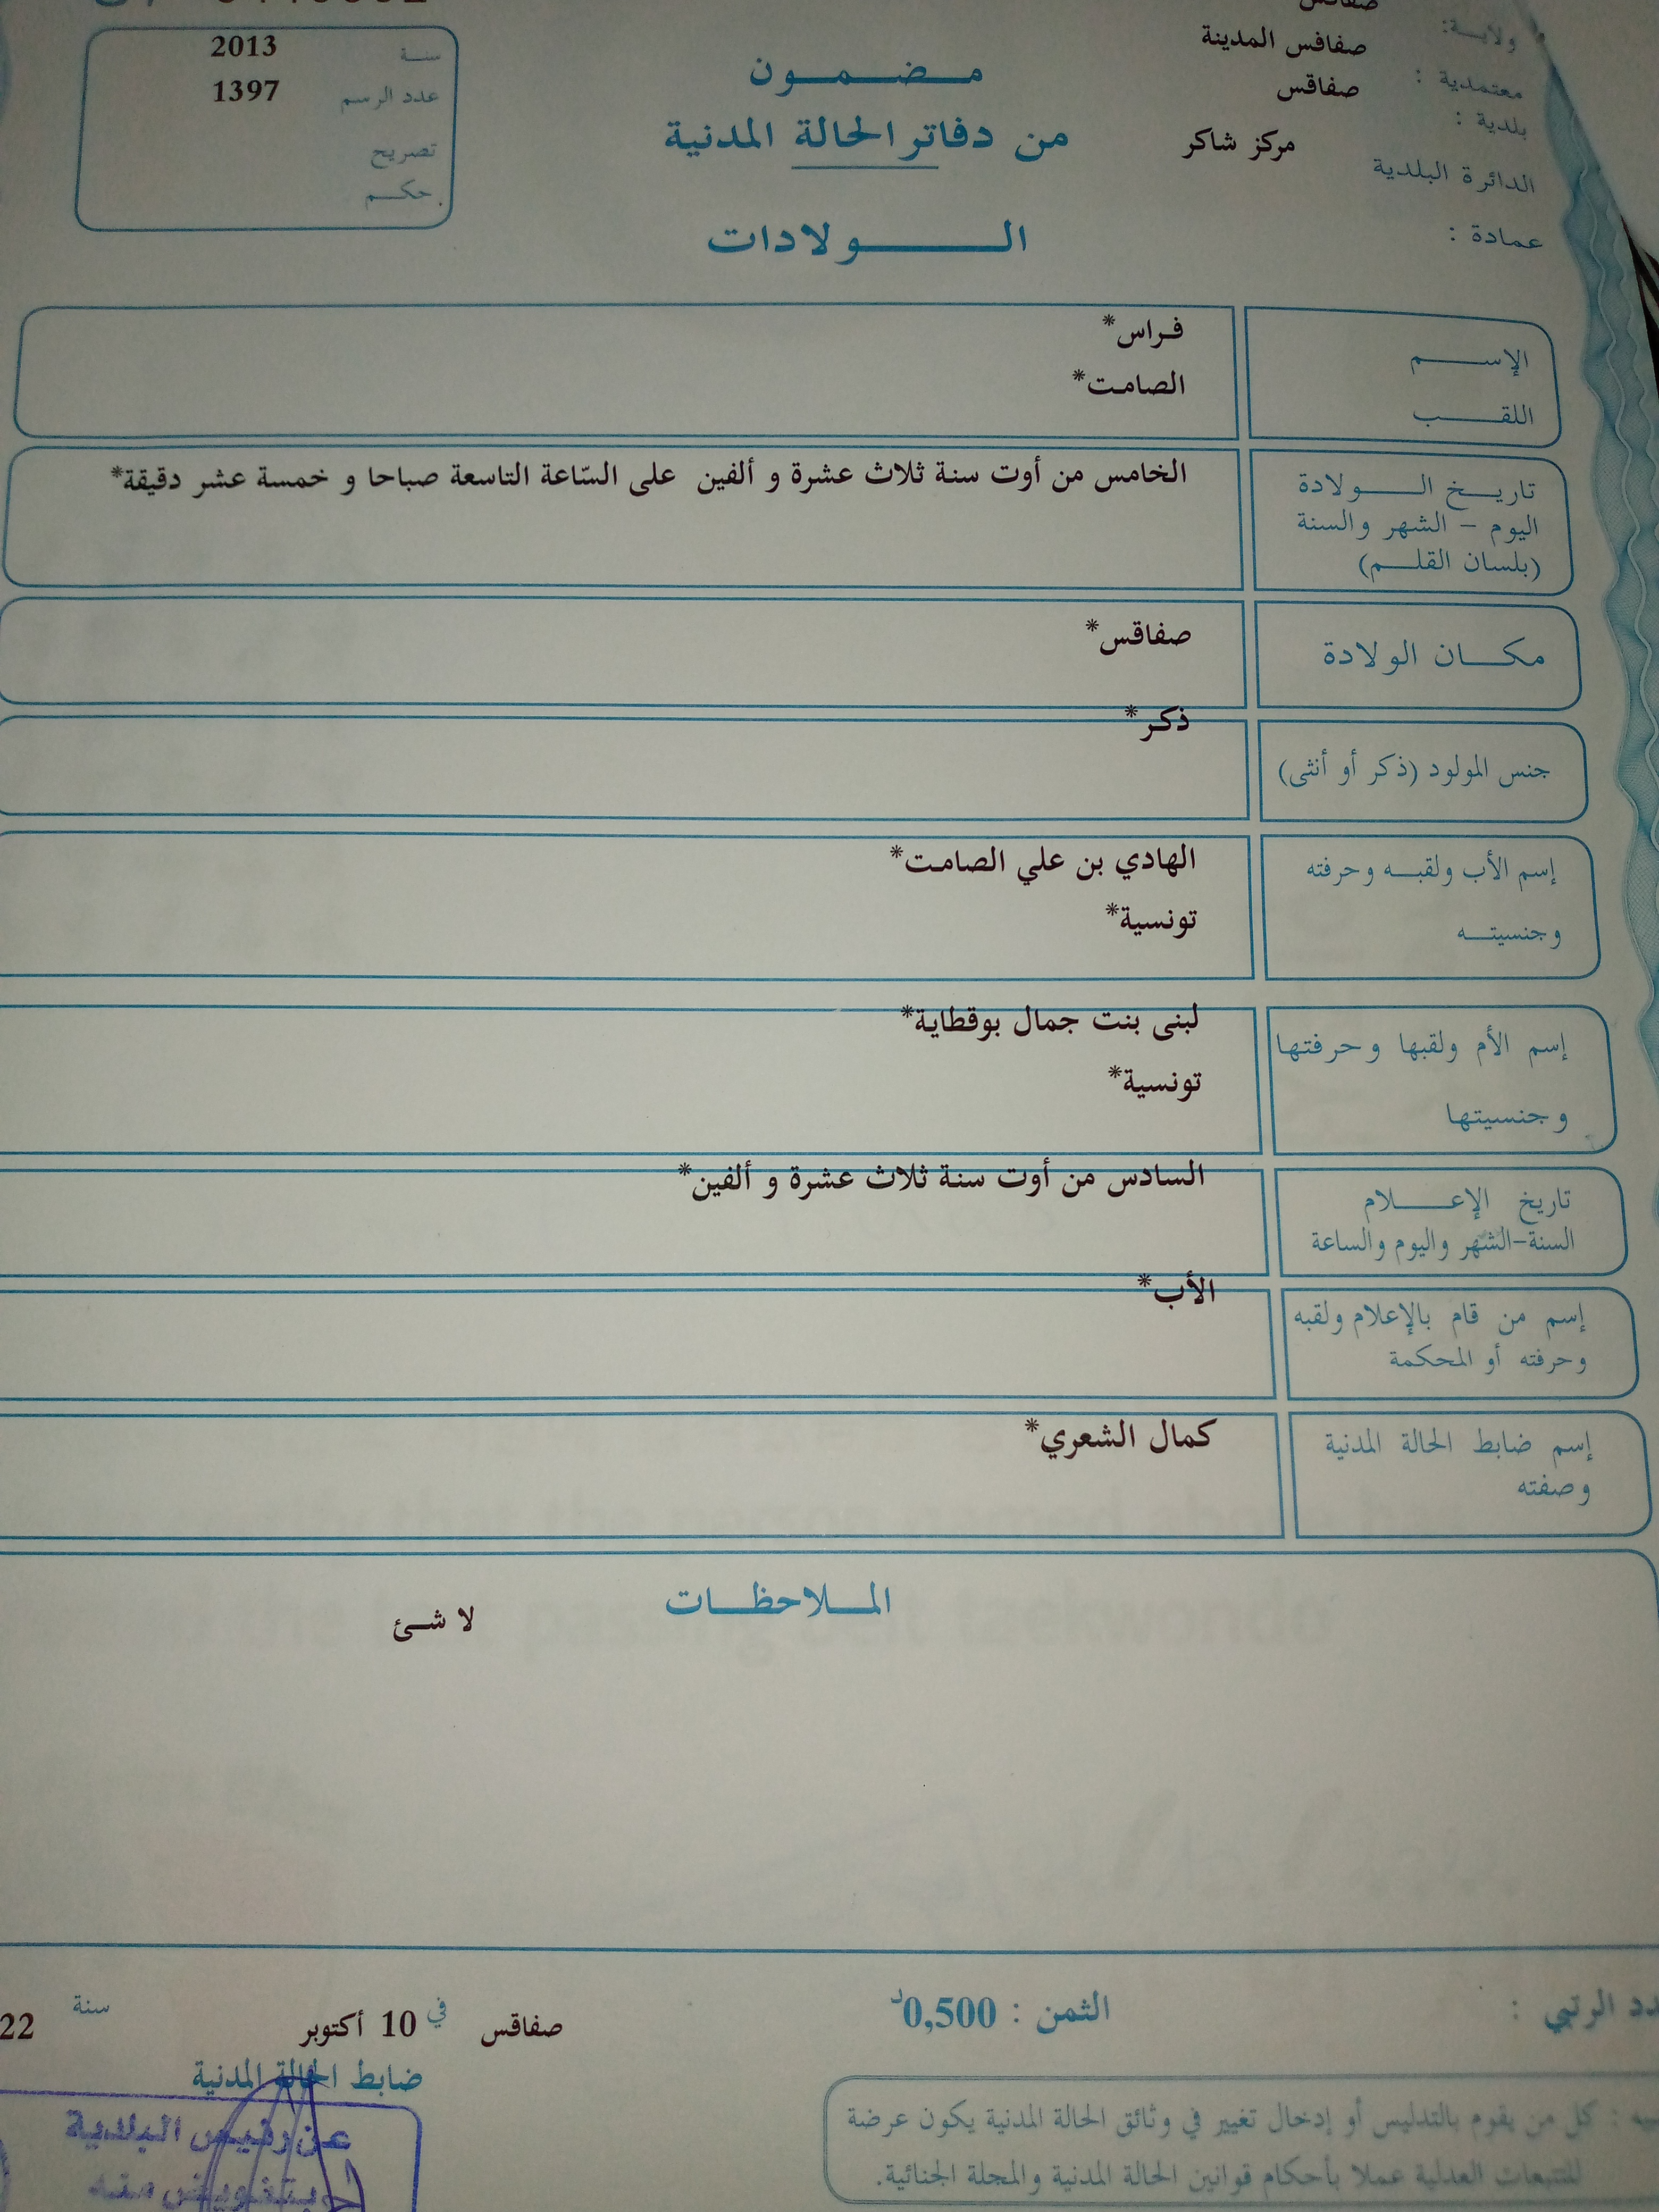 صفاقس
ولايـــة:
صفاقس المدينة
معتمدية :
صفاقس
بلدية :
مركز شاكر
الدائرة البلدية
عمادة :
سنــة 2013
عدد الرسم 1397
تصريح
حكـــم
مـــضـــمـــون
من دفاتر الحالة المدنية
الـــــولادات
الإســـــم فراس*
اللقـــــب الصامت*
تاريـــخ الـــــولادة الخامس من أوت سنة ثلاث عشرة و ألفين على السّاعة التاسعة صباحا و خمسة عشر دقيقة*
اليوم – الشهر والسنة
(بلسان القلـــم)
مكـــان الولادة صفاقس*
جنس المولود (ذكر أو أنثى) ذكر*
إسم الأب ولقبـــه وحرفته الهادي بن علي الصامت*
وجنسيتـــه تونسية*
إسم الأم ولقبها وحرفتها لبنى بنت جمال بوقطاية*
وجنسيتها تونسية*
تاريخ الإعـــــلام السادس من أوت سنة ثلاث عشرة و ألفين*
السنة–الشهر واليوم والساعة
إسم من قام بالإعلام ولقبه الأب*
وحرفته أو المحكمة
إسم ضابط الحالة المدنية كمال الشعري*
وصفته
الملاحظـــات
لا شئ
الرتبي :
الثمن : 0,500د
صفاقس في 10 أكتوبر سنة 22
ضابط الحالة المدنية
عن رئيس البلدية
بتفويض منه
: كل من يقوم بالتدليس أو إدخال تغيير في وثائق الحالة المدنية يكون عرضة
للتتبعات العدلية عملا بأحكام قوانين الحالة المدنية والمجلة الجنائية.